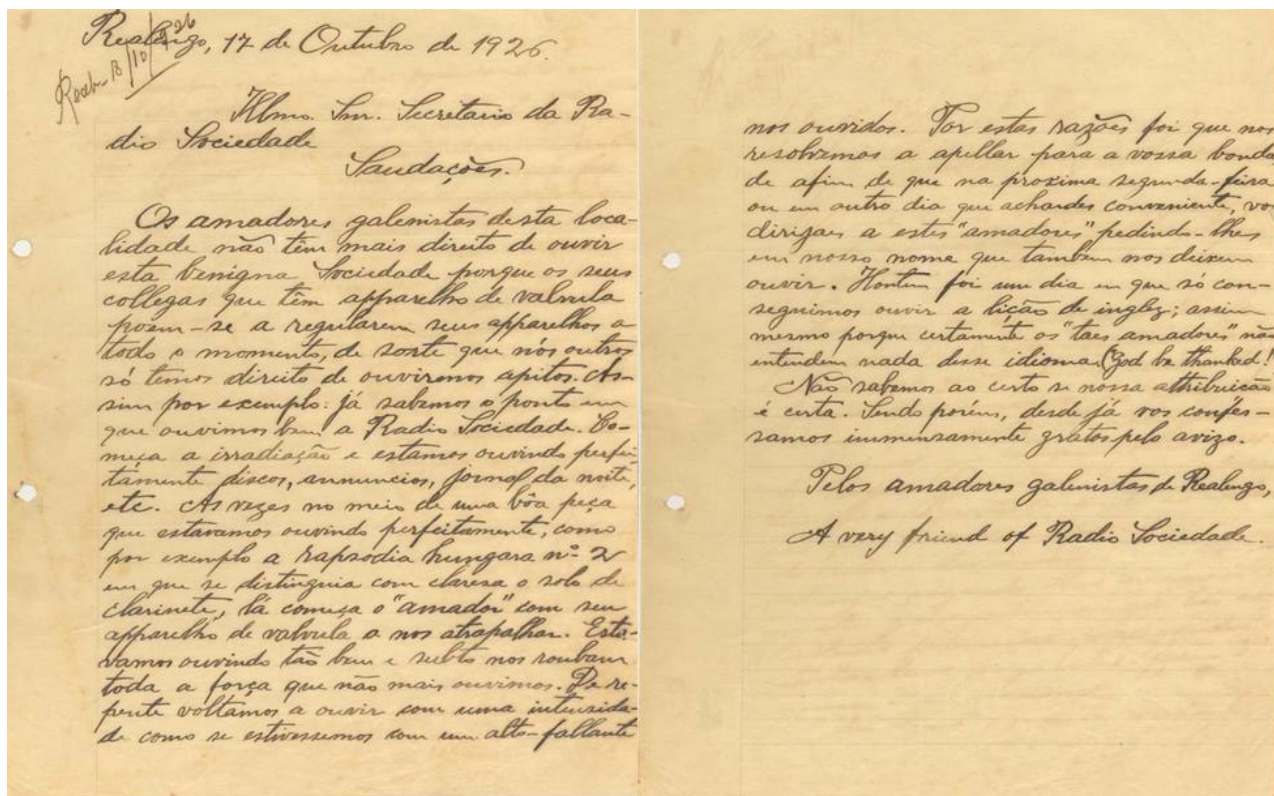 Realengo, 17 de Outubro de 1926.
Receb. 18/10/926
Illmo. Snr. Secretario da Ra-
dio Sociedade
Saudações.
Os amadores galenistas desta loca-
lidade não têm mais direito de ouvir
esta benigna Sociedade porque os seus
collegas que têm apparelho de valvula
poem-se a regularem seus apparelhos a
todo o momento, de sorte que nós outros
só temos direito de ouvirmos apitos. As-
sim por exemplo: já sabemos o ponto em
que ouvimos bem a Radio Sociedade. Co-
meça a irradiação e estamos ouvindo perfei-
tamente discos, annuncios, jornal da noite,
etc. Às vezes no meio de uma bôa peça
que estavamos ouvindo perfeitamente, como
por exemplo a rapsodia hungara nº 2
em que se distinguia com claresa o solo de
clarinete, lá começa o "amador" com seu
apparelho de valvula a nos atrapalhar. Esta-
vamos ouvindo tão bem e subto nos roubam
toda a força que não mais ouvimos. De re-
pente voltamos a ouvir com uma intensida-
de como se estivessemos com um alto-fallante
nos ouvidos. Por estas razões foi que nos
resolvemos a apellar para a vossa bonda
de afim de que na proxima segunda-feira
ou em outro dia que achardes conveniente, vos
dirijaes a estes "amadores" pedindo-lhes
em nosso nome que tambem nos deixem
ouvir. Hontem foi um dia em que só con-
seguimos ouvir a lição de inglez; assim
mesmo porque certamente os "taes amadores" não
entendem nada desse idioma (God be thanked!
Não sabemos ao certo se nossa attribuição
é certa. Sendo porém, desde já vos confes-
samos immensamente gratos pelo avizo.
Pelos amadores galenistas de Realengo,
A very friend of Radio Sociedade.